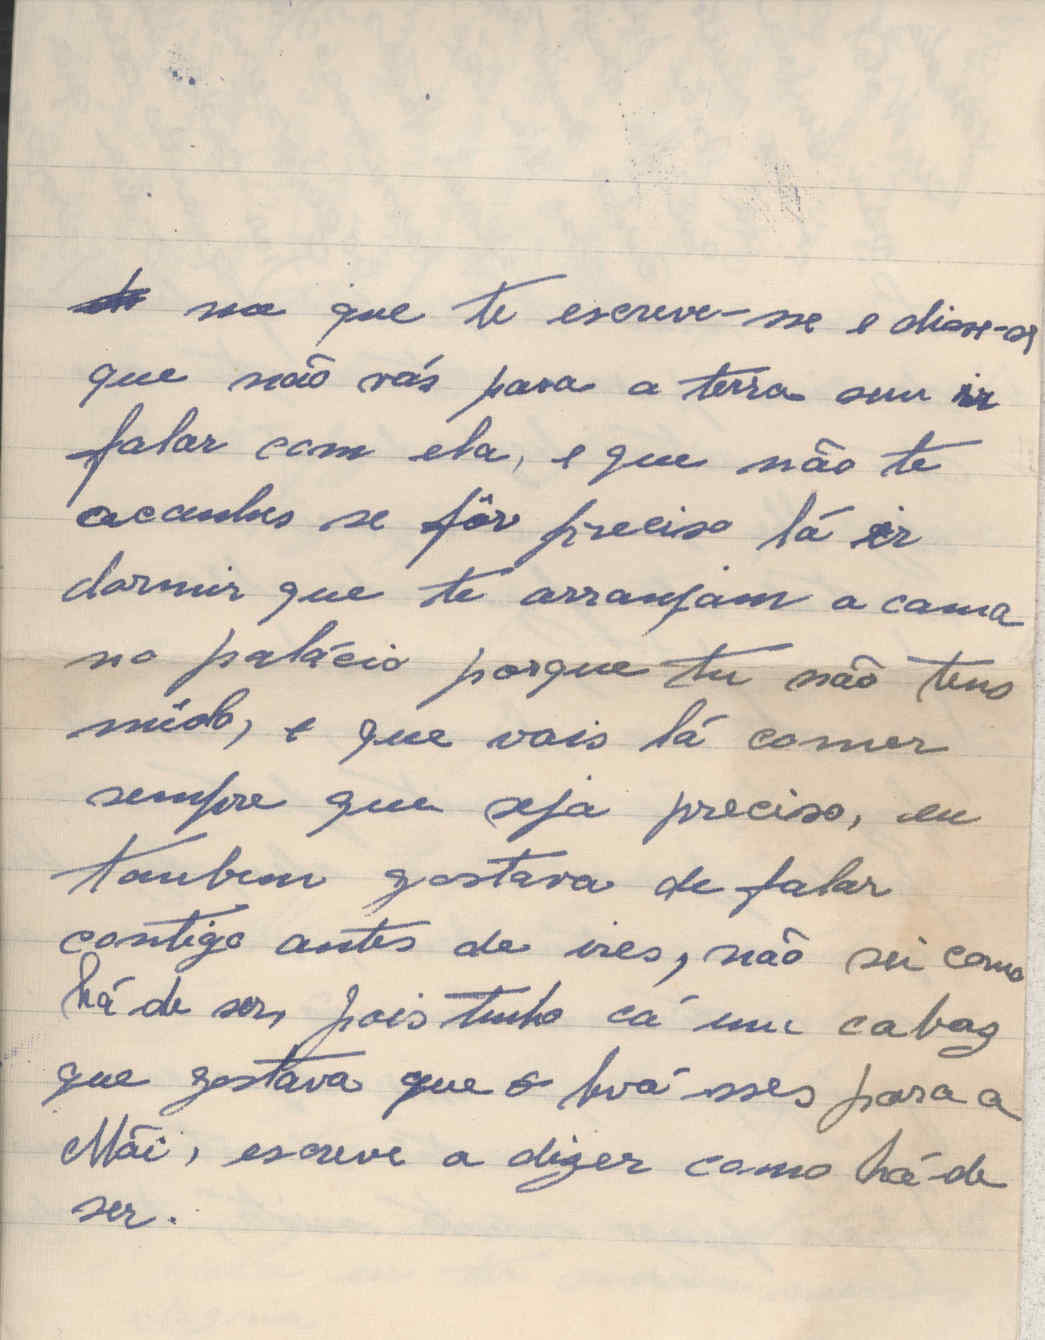 na que te escreve-se e disse-se
que não vás para a terra sem ir
falar com ela, e que não te
acanhes se fôr preciso lá ir
dormir que te arranjam a cama
no palácio porque tu não tens
mêdo, e que vais lá comer
sempre que seja preciso, eu
tambem gostava de falar
contigo antes de ires, não sei como
há-de ser, pois tenho cá um cabaz
que gostava que o levá-sses para a
Mãi, escreve a dizer como há-de
ser.